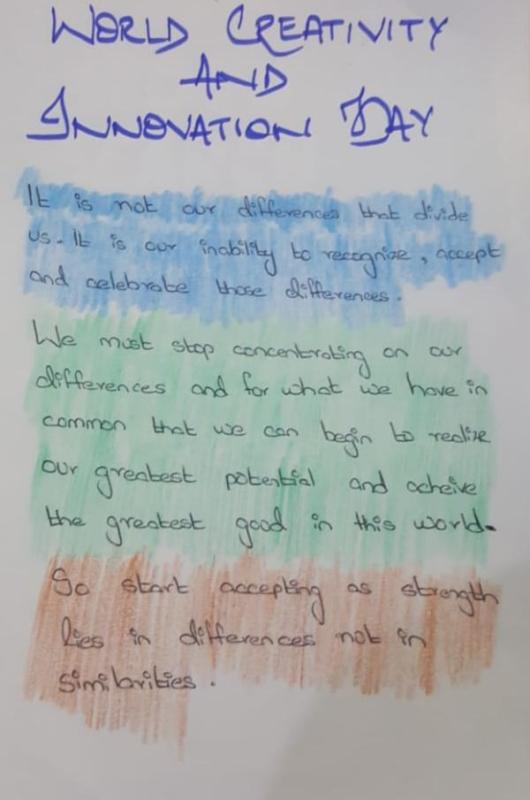 WORLD CREATIVITY
AND
INNOVATION DAY
It is not our differences that divide
us. It is our inability to recognize, accept
and celebrate those differences.
We must stop concentrating on our
differences and for what we have in
common that we can begin to realize
our greatest potential and acheive
the greatest good in this world.
So start accepting as strength
lies in differences not in
similarities.